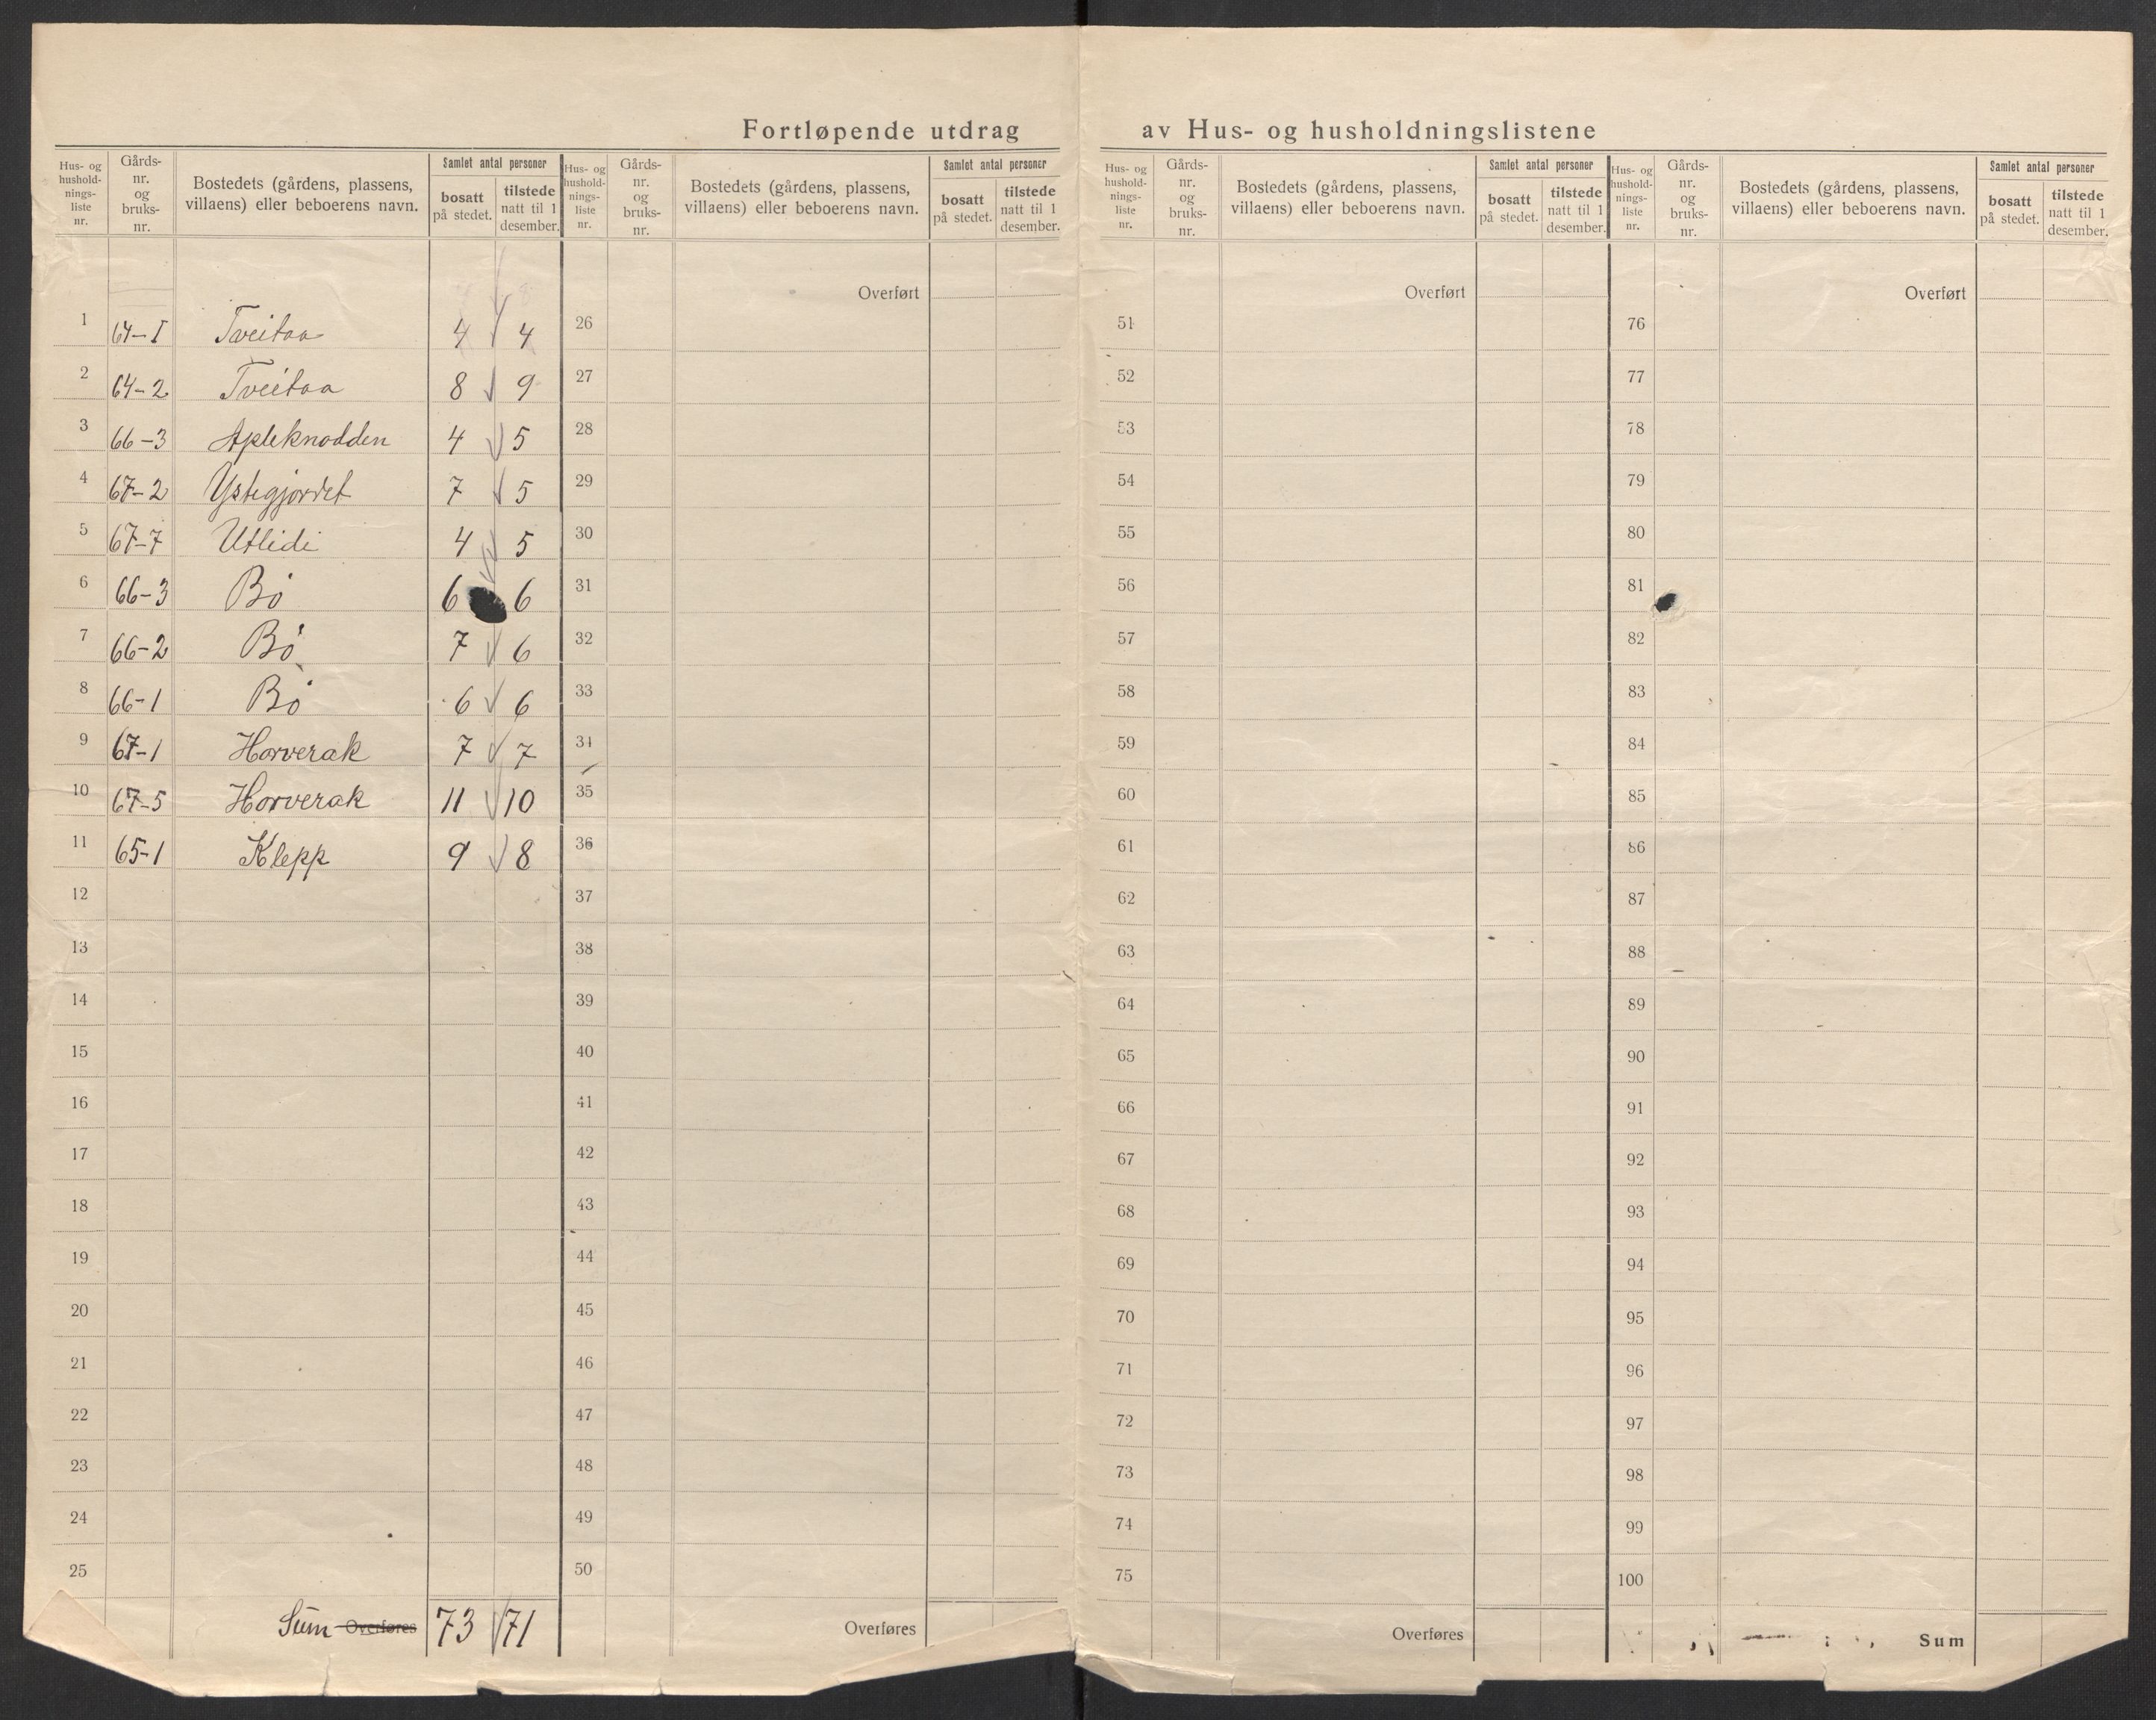 Fortløpende utdrag av Hus- og husholdningslistene
Hus- og husholdnings-liste nr. | Gårds-nr. og bruks-nr. | Bostedets (gårdens, plassens, villaens) eller beboerens navn. | Samlet antal personer | bosatt på stedet. | tilstede natt til 1 desember.
1 64-1 Tveitaa 4 4
2 64-2 Tveitaa 8 9
3 66-3 Apleknodden 4 5
4 67-2 Ystegjordet 7 5
5 67-7 Utlidi 4 5
6 66-3 Bö 6 6
7 66-2 Bö 7 6
8 66-1 Bö 6 6
9 67-1 Horverak 7 7
10 67-5 Horverak 11 10
11 65-1 Klepp 9 8
12
13
14
15
16
17
18
19
20
21
22
23
24
25
Sum Overføres 73 71
Hus- og husholdnings-liste nr. | Gårds-nr. og bruks-nr. | Bostedets (gårdens, plassens, villaens) eller beboerens navn. | Samlet antal personer | bosatt på stedet. | tilstede natt til 1 desember.
Overført
26
27
28
29
30
31
32
33
34
35
36
37
38
39
40
41
42
43
44
45
46
47
48
49
50
Overføres
Hus- og husholdnings-liste nr. | Gårds-nr. og bruks-nr. | Bostedets (gårdens, plassens, villaens) eller beboerens navn. | Samlet antal personer | bosatt på stedet. | tilstede natt til 1 desember.
Overført
51
52
53
54
55
56
57
58
59
60
61
62
63
64
65
66
67
68
69
70
71
72
73
74
75
Overføres
Hus- og husholdnings-liste nr. | Gårds-nr. og bruks-nr. | Bostedets (gårdens, plassens, villaens) eller beboerens navn. | Samlet antal personer | bosatt på stedet. | tilstede natt til 1 desember.
Overført
76
77
78
79
80
81
82
83
84
85
86
87
88
89
90
91
92
93
94
95
96
97
98
99
100
Sum